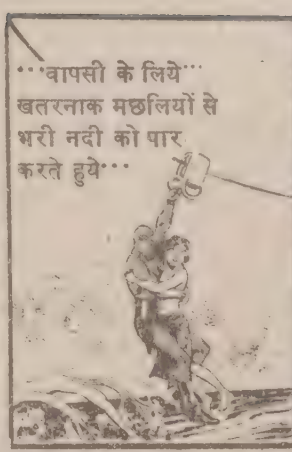 ···वापसी के लिये···
खतरनाक मछलियों से
भरी नदी को पार
करते हुये···